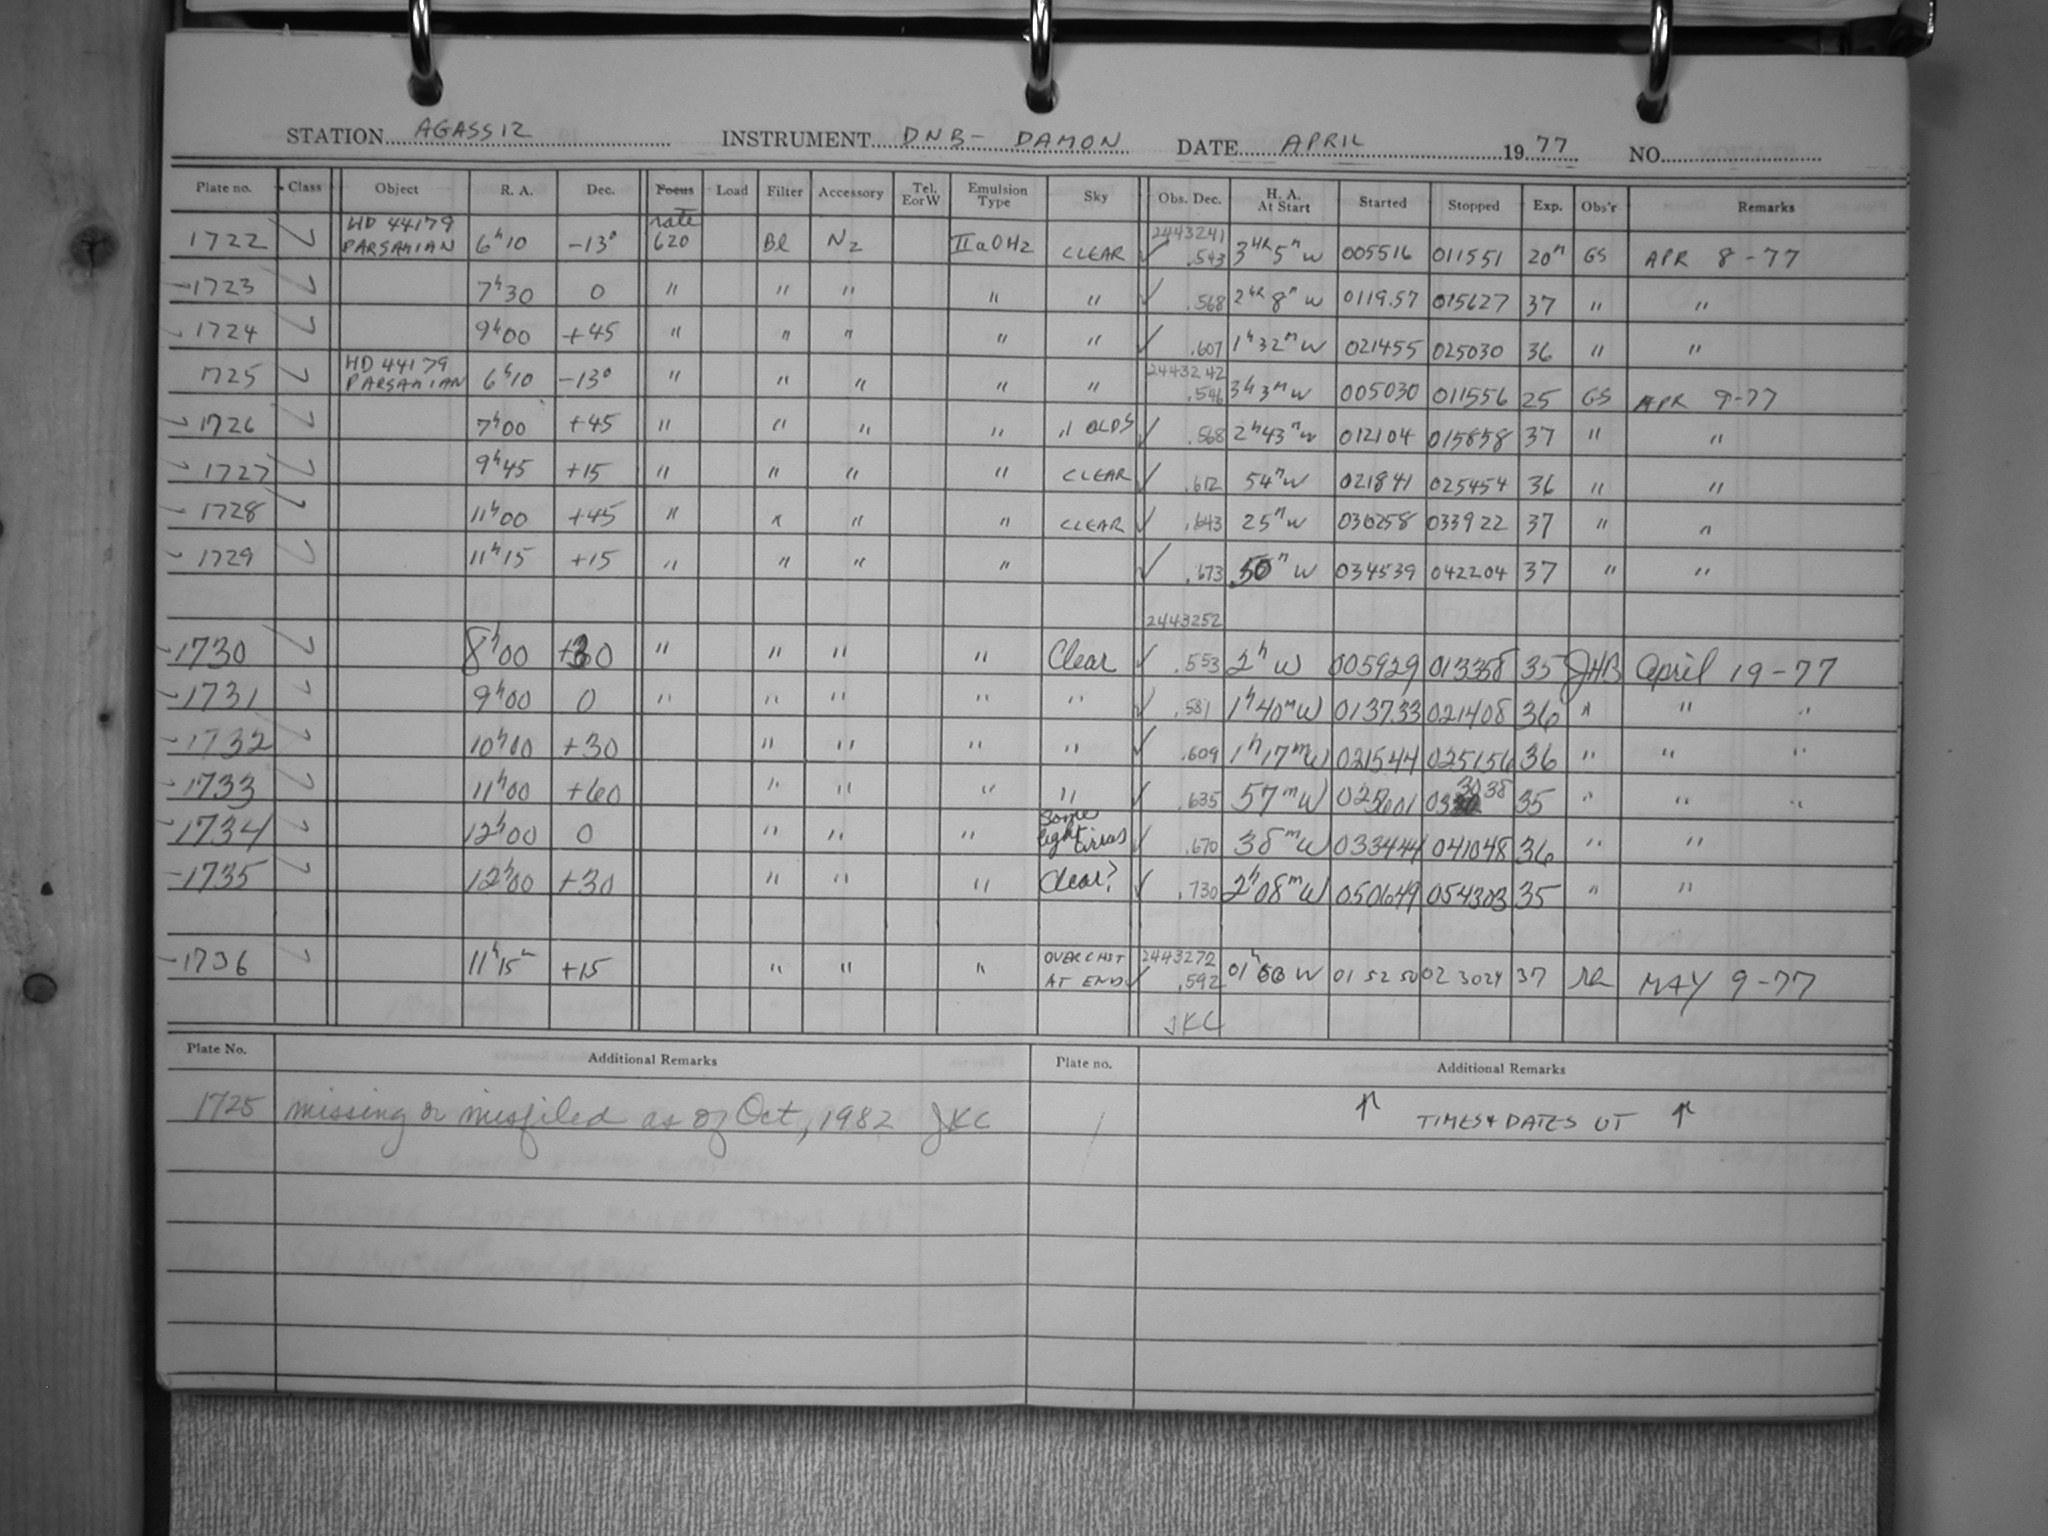 STATION AGASSIZ INSTRUMENT DNB- DAMON DATE APRIL 1977 NO.
Plate no. Class Object R. A. Dec. Focus Load Filter Accessory Tel. EorW Emulsion Type Sky Obs. Dec. H. A. At Start Started Stopped Exp. Obs'r Remarks
rate
1722 ✓ HD 44179 PARSAMIAN 6h10 -13° 620 Bl N2 IIaOH2 CLEAR 2443241 ✓ .543 3HR 5m W 005516 011551 20m GS APR 8-77
1723 ✓ 7h30 0 " " " " " ✓ .568 2HR 8m W 0119.57 015627 37 " "
1724 ✓ 9h00 +45 " " " " " ✓ .607 1h32m W 021455 025030 36 " "
1725 ✓ HD 44179 PARSAMIAN 6h10 -13° " " " " " 2443242 .546 3h3m W 005030 011556 25 GS APR 9-77
1726 ✓ 7h00 +45 " " " " ✓ .568 2h43m W 012104 015858 37 " "
1727 ✓ 9h45 +15 " " " " CLEAR ✓ .612 54m W 021841 025454 36 " "
1728 ✓ 11h00 +45 " " " " CLEAR ✓ .643 25m W 030258 033922 37 " "
1729 ✓ 11h15 +15 " " " " ✓ .673 50m W 034539 042204 37 " "
2443252
1730 ✓ 8h00 +30 " " " " Clear ✓ .553 2h W 005929 013358 35 JHB April 19-77
1731 ✓ 9h00 0 " " " " " ✓ .581 1h40m W 013733 021408 36 " " "
1732 ✓ 10h00 +30 " " " " ✓ .609 1h17m W 021544 025156 36 " " "
1733 ✓ 11h00 +60 " " " " ✓ .635 57m W 025601 033038 35 " " "
1734 ✓ 12h00 0 " " " Some light cirrus ✓ .670 38m W 033444 041048 36 " "
1735 ✓ 12h00 +30 " " " Clear? ✓ .730 2h08m W 050649 054303 35 " "
1736 ✓ 11h15 +15 " " " OVERCAST AT END 2443272 ✓ .592 01h W 01 52 50 02 3024 37 MAY 9-77
JKC
Plate No. Additional Remarks Plate no. Additional Remarks
1725 missing or misfiled as of Oct, 1982 JKC ↑ TIMES & DATES UT ↑